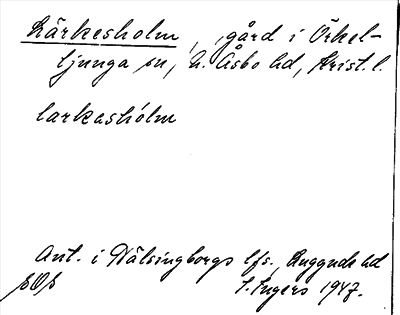 Lärkesholm, gård i Örkel-
ljunga sn, N. Åsbo hd, Krist. l.
larkashólm
Ant. i Hälsingborgs lfs., Luggude hd
S. Ingers 1947.